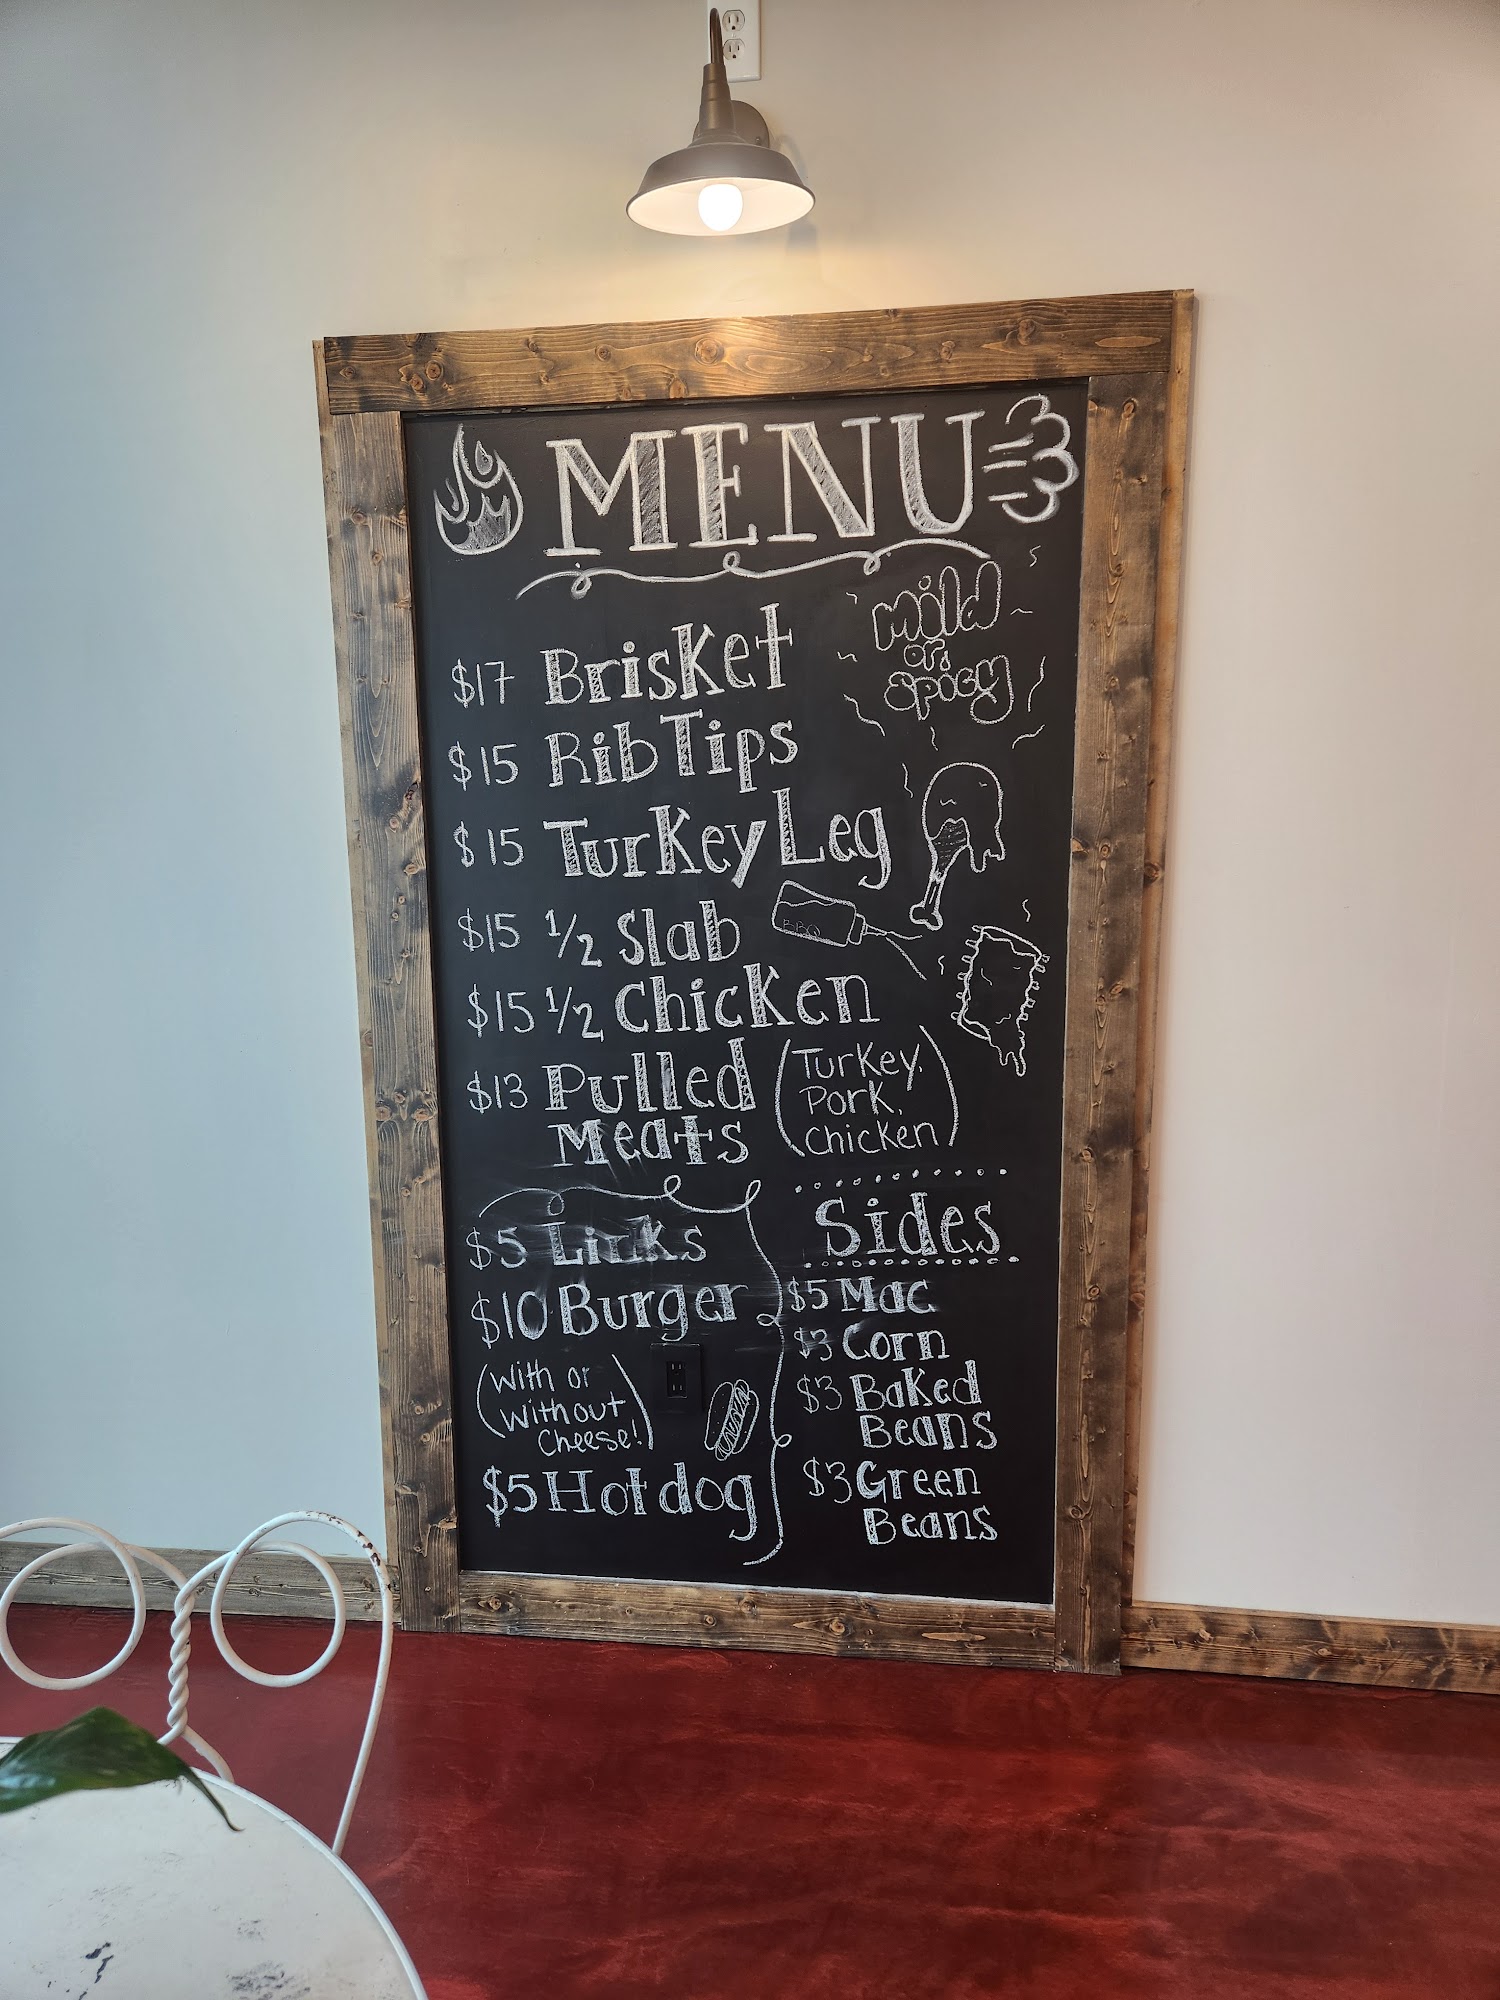 MENU
Mild
or
Spicy
$17 Brisket
$15 Rib Tips
$15 Turkey Leg
BBQ
$15 1/2 Slab
$15 1/2 Chicken
$13 Pulled
Meats
(Turkey,
Pork,
Chicken)
$5 Links
$10 Burger
(With or
Without
Cheese!)
$5 Hot dog
Sides
$5 Mac
$3 Corn
$3 Baked
Beans
$3 Green
Beans